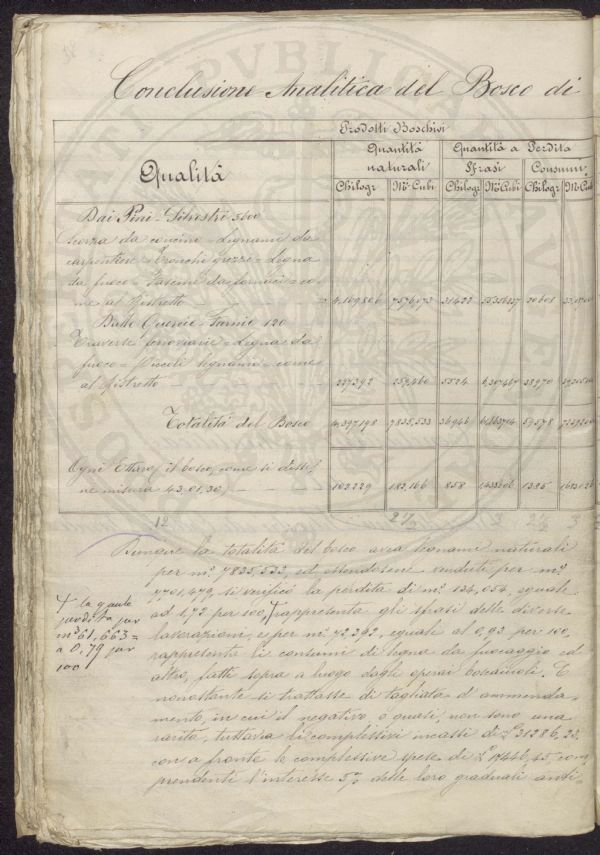 Conclusione Analitica del Bosco di
Prodotti Boschivi
Qualità
Quantità naturali
Quantità a Perdita
Sfrasi
Consumi
Chilogr. Mⁱ Cubi Chilogr. Mⁱ Cubi Chilogr. M. Cub
Dai Pini-Silvestri 5400
Scorza da concino = Legnami da
carpentiere = Tronchi grezzi = Legna
da fuoco = Fascine da fornaci = co=
me al Ristretto
Dalle Quercie-Farnie 120
Traverse ferroviarie = Legna da
fuoco = Piccoli legnami = come
al Ristretto
Totalità del Bosco 4,397,198 7835,533 36946 59578
Ogni Ettaro (il bosco, come si disse,
ne misura 43,01,30) 102229 182,166 858
Dunque la totalità del bosco avea legnami naturali
per mⁱ 7835,533, ed essendosene venduti per mⁱ
7701,479, si verificò la perdita di mⁱ 134,054, eguale
ad 1,72 per 100, + rappresenta gli sfrasi delle diverse
lavorazioni, e per mⁱ 72,392, eguali al 0,93 per 100,
rappresenta li consumi di legna da fuocaggio ed
altro, fatti sopra a luogo dagli operai boscaiuoli. E
nonostante si trattasse di tagliata d'ammenda=
mento, in cui il negativo o quasi, non sono una
rarità, tuttavia li complessivi incassi di L. 31286,23,
con a fronte le complessive spese di L. 17446,45, com=
prendenti l'interesse 5% delle loro graduali anti=
+ la quale
per mⁱ 61,663=
a 0.79 per
100